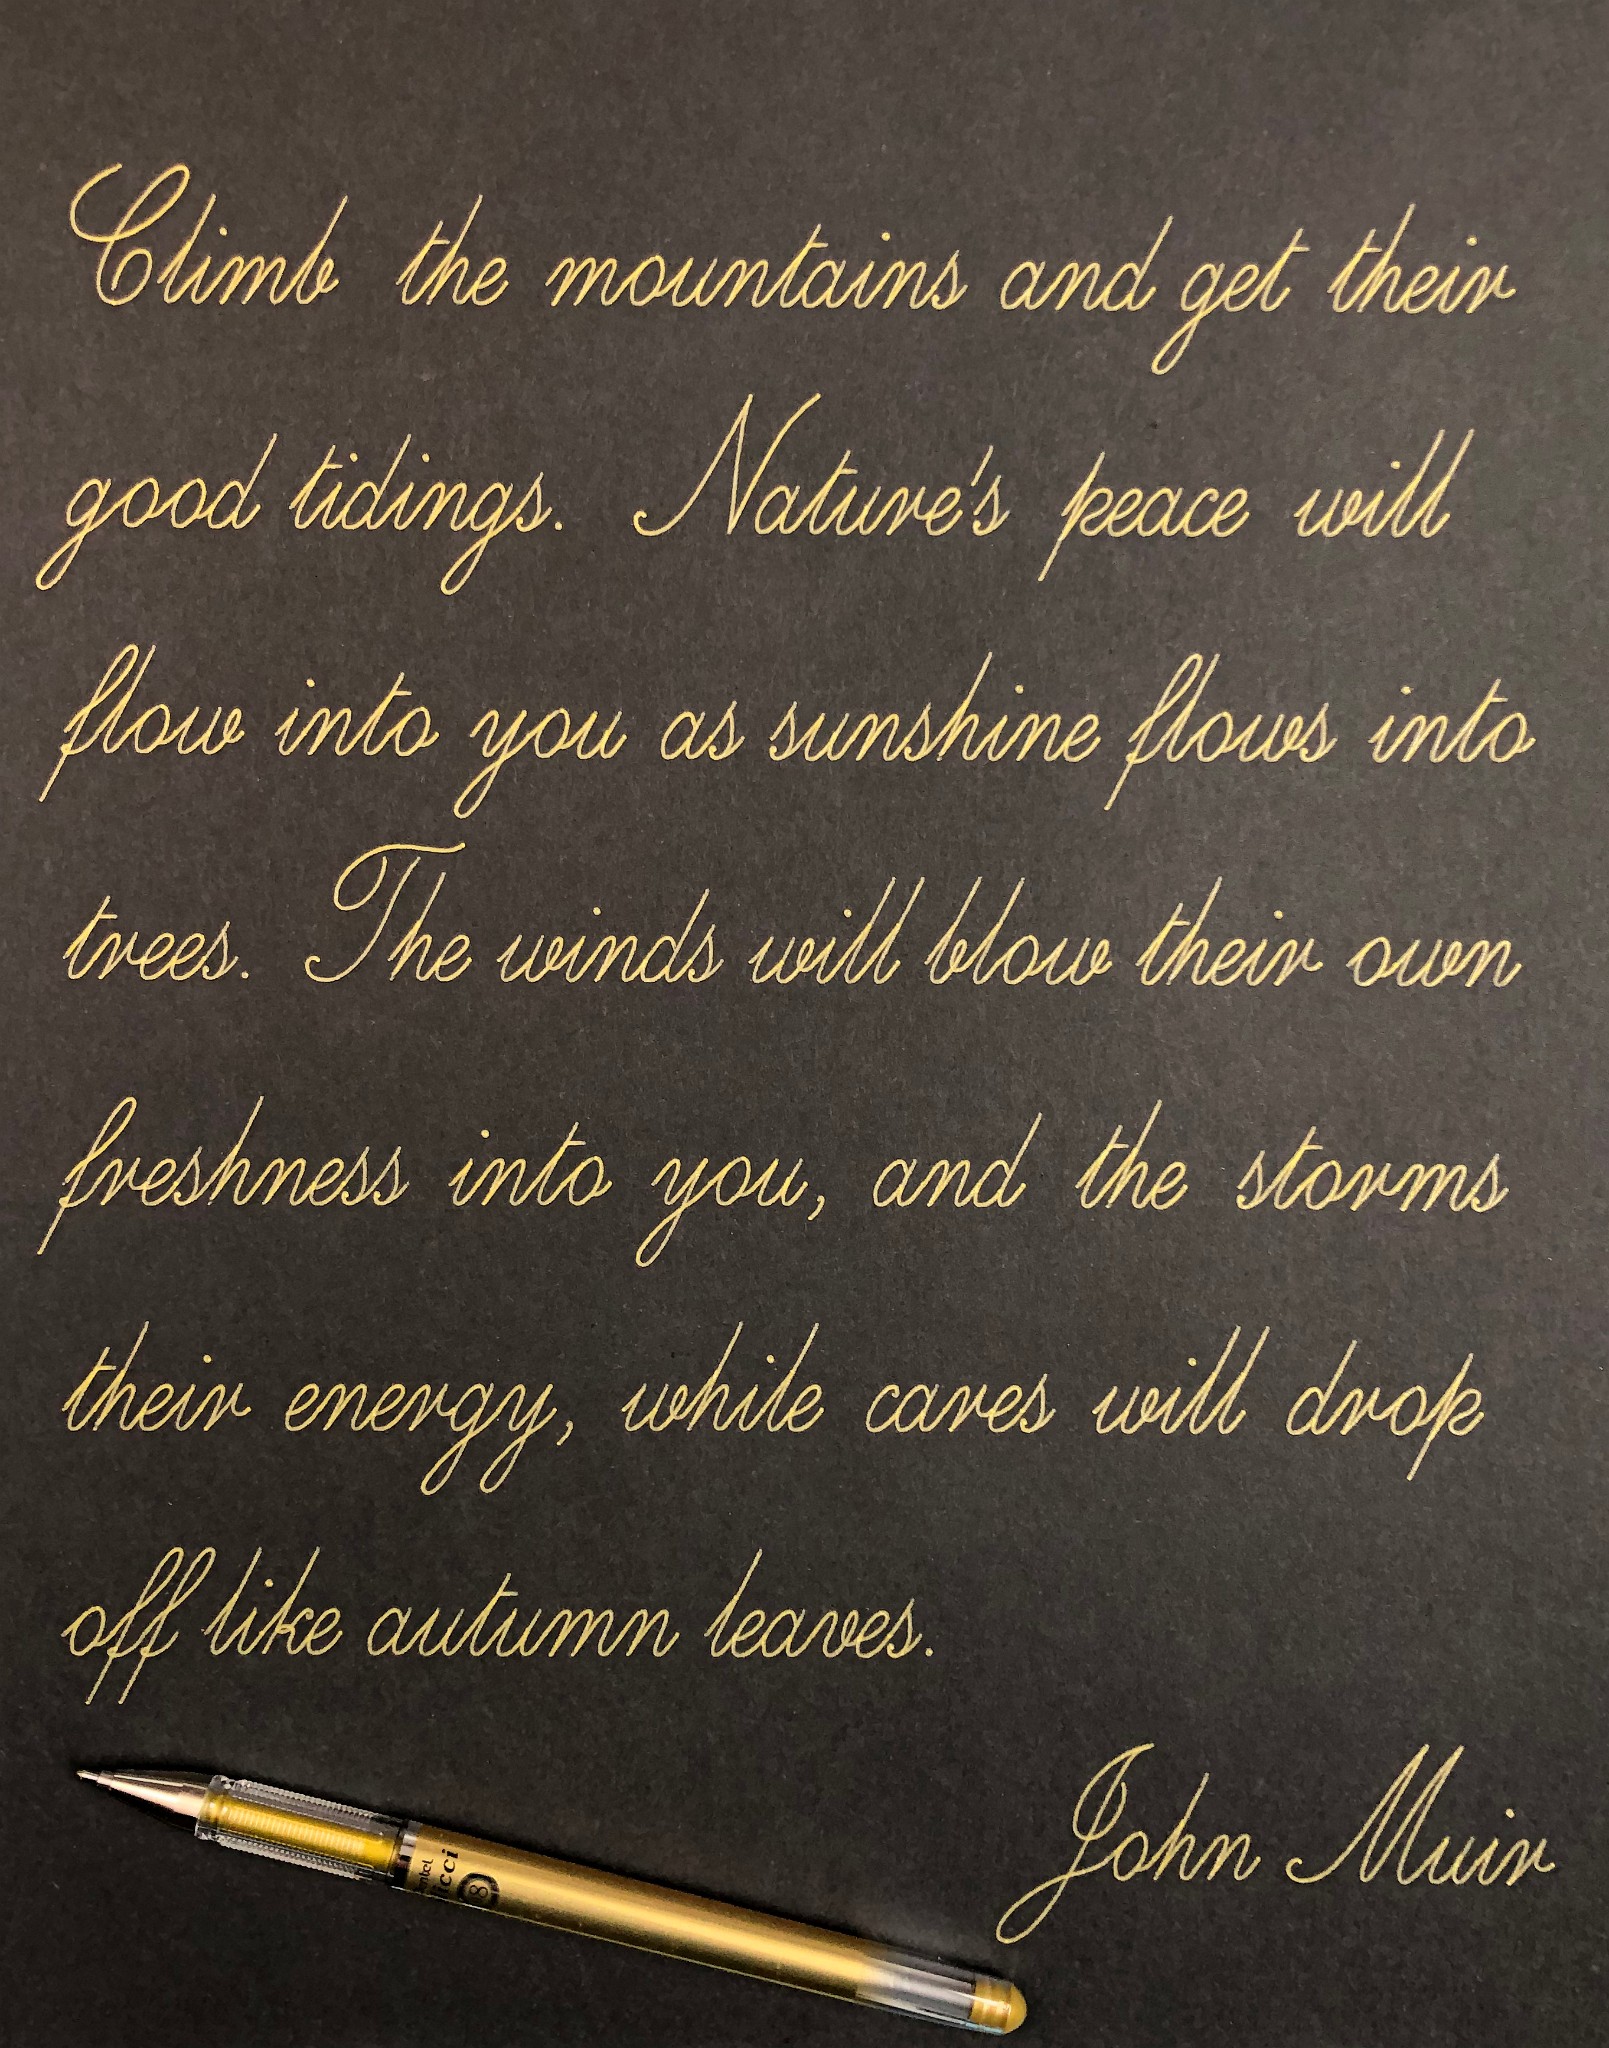 Climb the mountains and get their
good tidings. Nature's peace will
flow into you as sunshine flows into
trees. The winds will blow their own
freshness into you, and the storms
their energy, while cares will drop
off like autumn leaves.
John Muir
8